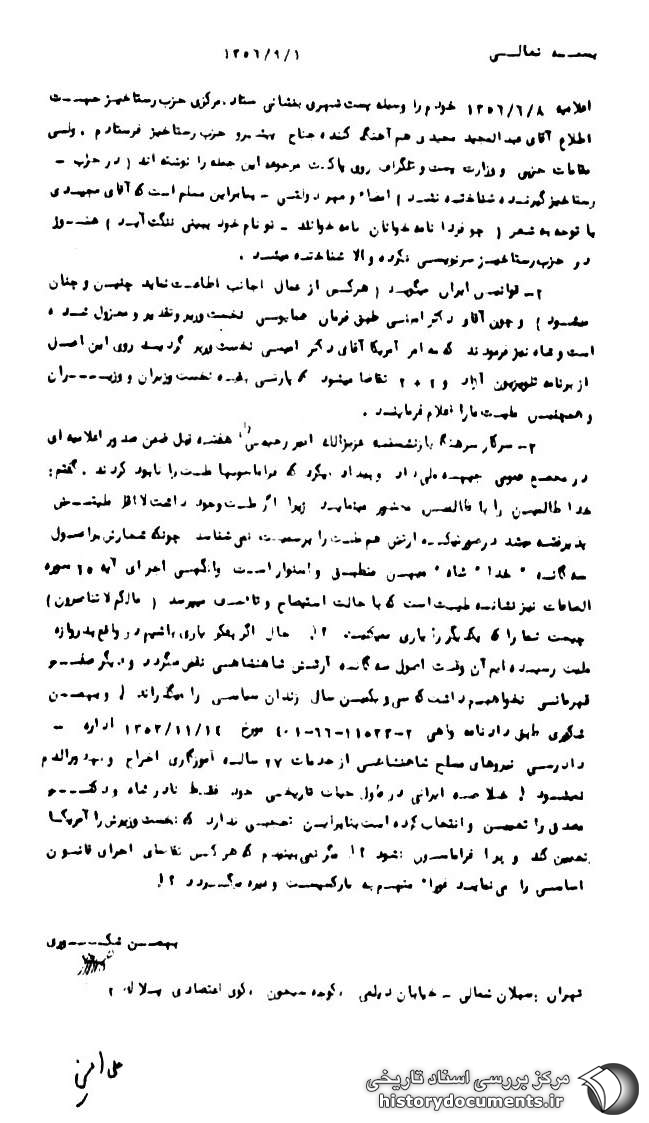 بسمه تعالی
۱۳۵۶/۹/۱
اعلامیه ۱۳۵۶/۶/۸ خودم را وسیله پست شهری بنشانی ستاد مرکزی حزب رستاخیز جهت
اطلاع آقای عبدالمجید مجیدی هم آهنگ کننده جناح پیشرو حزب رستاخیز فرستادم . ولی
مقامات حزبی و وزارت پست و تلگراف روی پاکت مرجوعه این جمله را نوشته اند ( در حزب -
رستاخیز گیرنده شناخته نشد ) امضاء و مهر دولتی - بنابراین مسلم است که آقای مجیدی
با توجه به شعر ( چو فردا نامه خوانان نامه خوانند - تو نام خود ببینی ننگت آید ) هنوز
در حزب رستاخیز سرنویسی نکرده والا شناخته میشد .
۲- قوانین ایران میگوید ( هرکس از عمال اجانب اطاعت نماید چنین و چنان
میشود ) و چون آقای دکتر امینی طبق فرمان همایونی نخست وزیر و تقدیر و معزول شده
است و شاه نیز فرمودند که به امر آمریکا آقای دکتر امینی نخست وزیر گردید روی این اصل
از برنامه تلویزیون آزاد و ۲ + ۲ تقاضا میشود که بقیه نخست وزیران و وزیران
و همچنین ملیت ما را اعلام فرمایند .
۳- سرکار سرهنگ بازنشسته عزیزالله امیر رحیمی هفته قبل ضمن صدور اعلامیه ای
در مجمع عمومی جبهه ملی داد و بیداد میکرد که فراماسونها ملت را نابود کردند . گفتم :
خدا ظالمین را با ظالمین محشور مینماید زیرا اگر ملت وجود داشت لااقل ملیتش
پذیرفته میشد در صورتیکه ارتش هم ملت را برسمیت نمی شناسد چونکه شعارش بر اصول
سه گانه " خدا " شاه " میهن منطبق و استوار است وانگهی اجرای آیه ۲۵ سوره
الصافات نیز نشانده ملیت است که با حالت استیضاح و تا حدی میپرسد ( مالکم لا تناصرون )
چیست شما را که یکدیگر را یاری نمیکنید ؟! . حال اگر بفکر یاری باشیم در واقع بدروازه
ملیت رسیده ایم آن وقت اصول سه گانه ارتش شاهنشاهی نقض میگردد و دیگر
قهرمانی نخواهیم داشت که سی و یکمین سال زندان سیاسی را میگذراند ! و بهمن
شکوری طبق دادنامه واهی ۲-۱۱۵۲۲-۶۶-۴۰۱ مورخ ۱۳۵۳/۱۱/۱۴ اداره -
دادرسی نیروهای مسلح شاهنشاهی از خدمات ۲۷ ساله آموزگاری اخراج و
نمیشود ! خلاصه ایرانی در طول حیات تاریخی خود فقط نادر شاه و دکتر
مصدق را تعیین و انتخاب کرده است بنابراین تعجبی ندارد که نخست وزیرش را آمریکا
تعیین کند و چرا فراماسون نشود ؟! مگر نمی بینیم که هر کس تقاضای اجرای قانون
اساسی را می نماید فوراً متهم به مارکسیست و غیره میگردد ؟!
بهمن شکوری
تهران سبلان شمالی - خیابان دیلمی ، کوچه میعون ، کوی اعتضادی پلاک ۲
علی امینی
مرکز بررسی اسناد تاریخی
historydocuments.ir